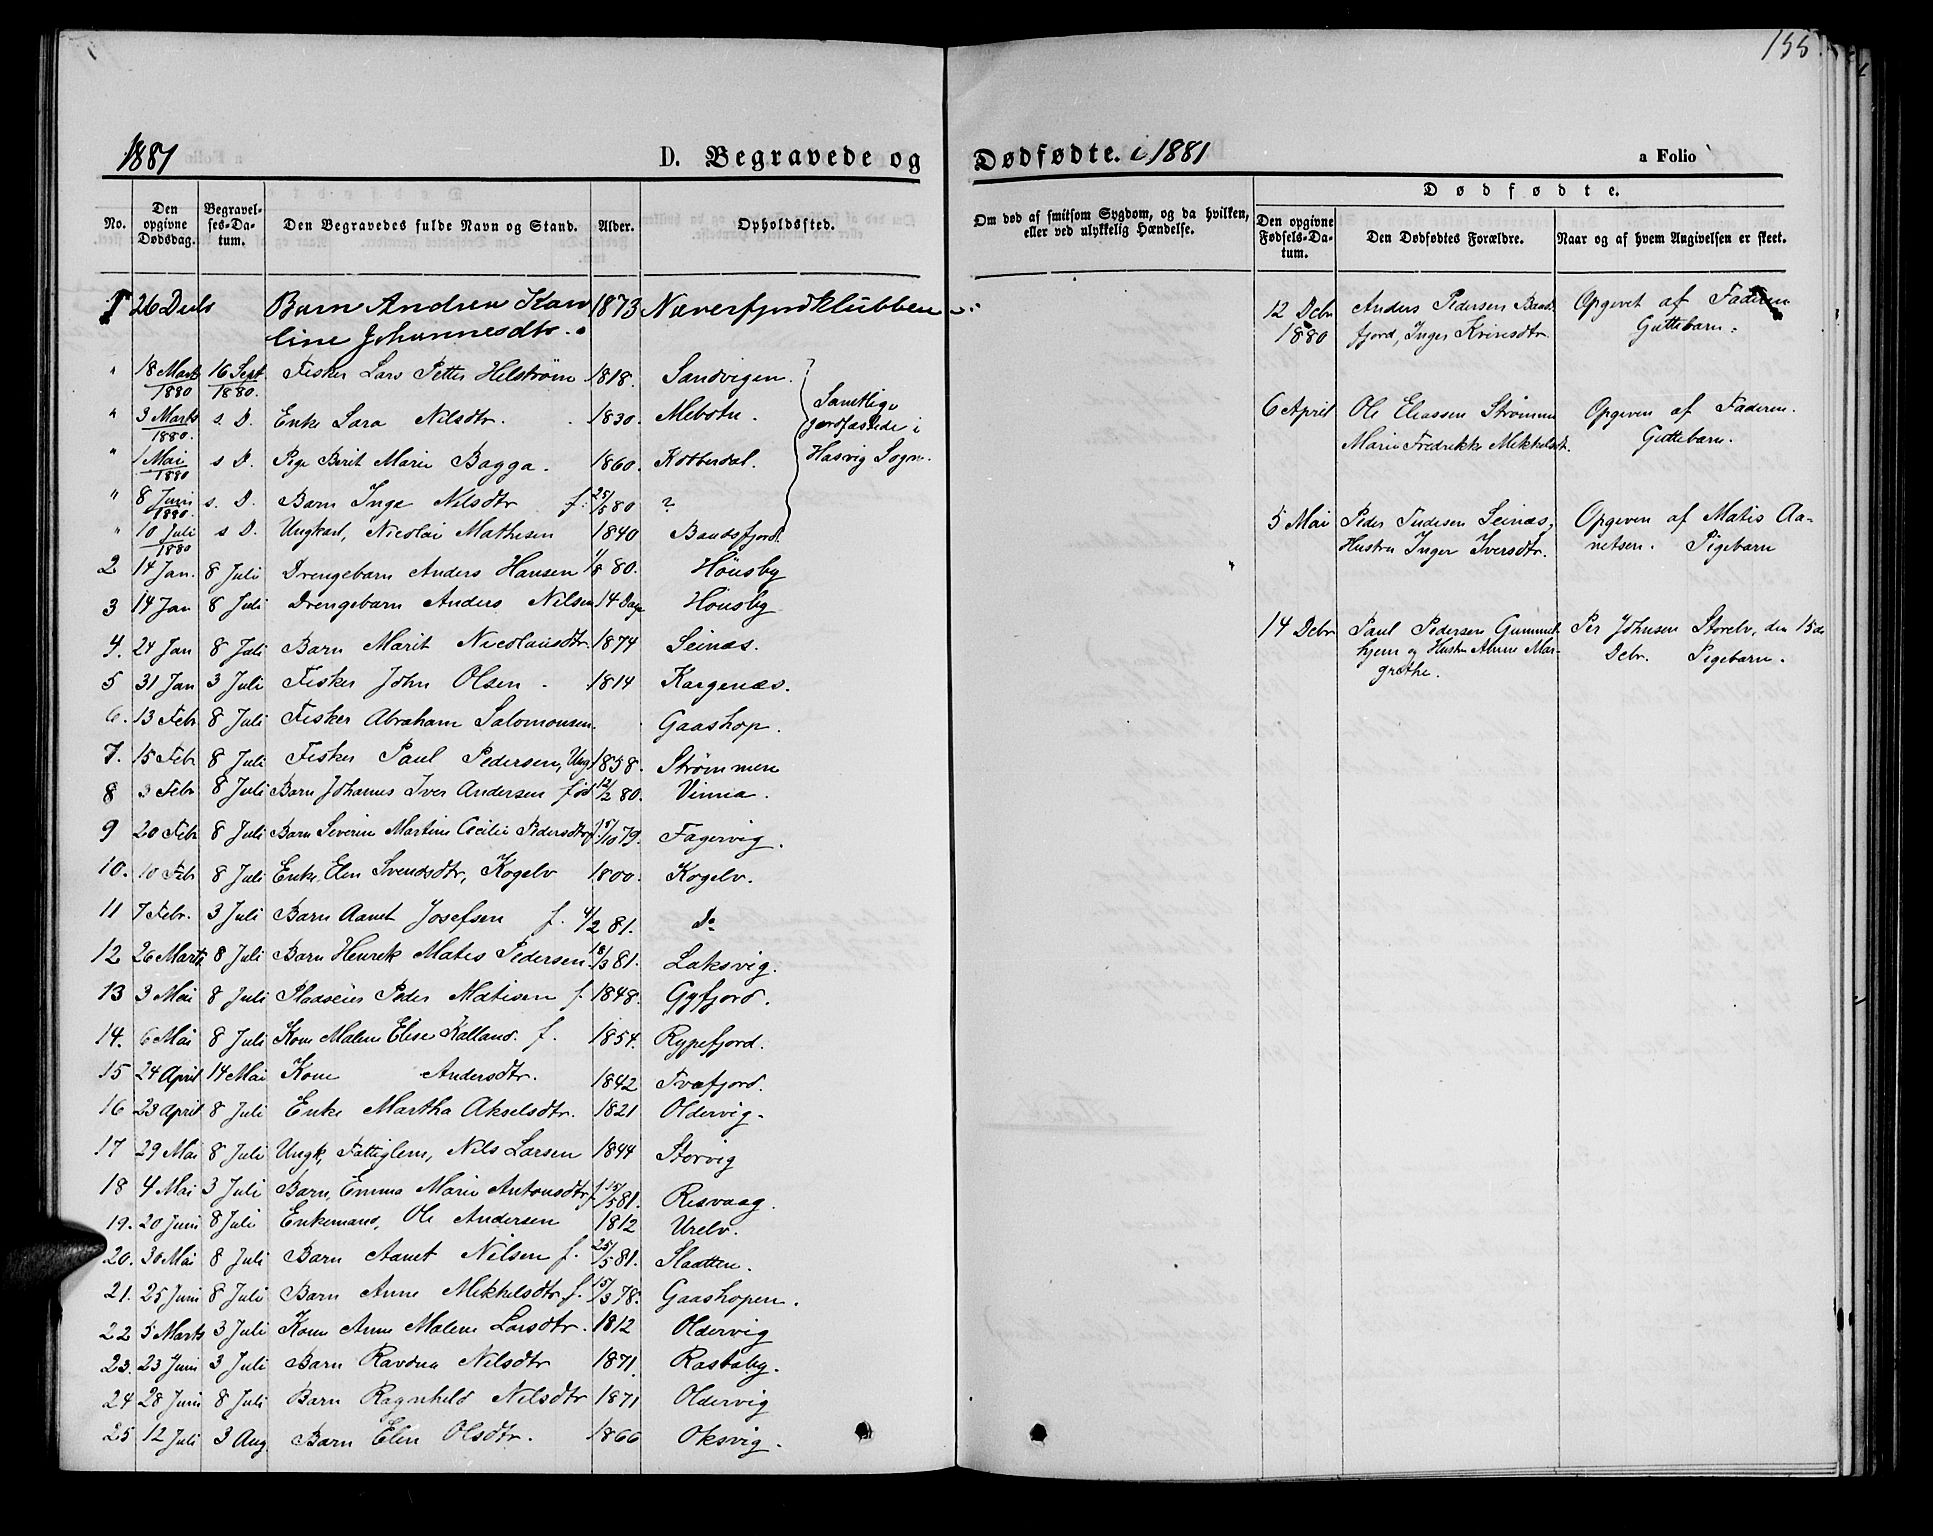 155
1881
D. Begravede og
Dødfødte. i 1881
a Folio
No.
Den opgivne Dødsdag.
Begravelses-Datum.
Den Begravedes fulde Navn og Stand.
Alder.
Opholdssted.
Om død af smitsom Sygdom, og da hvilken, eller ved ulykkelig Hændelse.
Dødfødte.
Den opgivne Fødsels-Datum.
Den Dødfødtes Forældre.
Naar og af hvem Angivelsen er skeet.
1 26 Barn Andrea Karo 1873 Næverfjordklubben
line Johannesdtr.
" 18 Marts 1880 16 Sept 1880. Fisker Lars Petter Helstrøm 1818. Sandvigen.
" 3 Marts 1880. s. D. Enke Sara Nilsdtr. 1830. Mebotn.
" 1 Mai 1880 s D. Pige Berit Marie Bagga. 1860. Kobberdal.
" 8 Juni 1880. s. D. Barn Inge Nilsdtr f. 25/5 80 ?
" 10 Juli 1880 s D. Ungkarl, Nicolai Mathisen 1840 Bandsfjord.
Samtlige
jordfæstede i
Hasvig Sogn.
2 14 Jan. 8 Juli Drengebarn Anders Hansen 11/8 80. Hönsby
3 14 Jan 8 Juli Drengebarn Anders Nilsen 14 Dage Hönsby
4. 24 Jan 8 Juli Barn Marit Nicolaisdtr 1874 Seinæs.
5 31 Jan 3 Juli Fisker John Olsen. 1814 Kargenæs.
6. 13 Febr 8 Juli Fisker Abraham Salomonsen. Gaashop.
7. 15 Febr 8 Juli Fisker Paul Pedersen, Ung 1858. Strømmen
8 3 Febr 8 Juli Barn Johannes Iver Andersen fød 12/2 80. Vinna.
9 20 Febr 8 Juli Barn Severine Martine Cecilie Pedersdtr f. 15/10 79. Fagervig.
10. 10 Febr 8 Juli Enke, Elen Svendsdtr, Kogelv 1800. Kogelv.
11 7 Febr. 3 Juli Barn Aanet Josefsen f. 4/2 81. Do
12 26 Marts 8 Juli Barn Henrik Mates Pedersen. 18/3 81. Laksvig.
13 3 Mai 8 Juli Pladseier Peder Matisen f. 1848. Gyfjord.
14. 6 Mai 8 Juli Kone Malene Elise Kalland. f. 1854. Rypefjord.
15 24 April 14 Mai Kone Andersdtr. 1842 Tvefjord.
16 23 April 8 Juli Enke Martha Akselsdtr. 1821 Oldervig.
17 29 Mai 8 Juli Ungk, Fattiglem, Nils Larsen 1844 Storvig
18 4 Mai 3 Juli Barn, Emma Marie Antonsdtr f. 15/5 81. Risvaag.
19. 20 Juni 8 Juli Enkemand, Ole Andersen 1812 Urelv.
20. 30 Mai 8 Juli Barn Aanet Nilsen f. 25/5 81. Slaatten.
21. 25 Juni 8 Juli Barn Anne Mikkelsdtr. f. 15/3 78. Gaashopen.
22 5 Marts 3 Juli Kone Anne Malene Larsdtr. 1812 Oldervig
23. 23 Juni 3 Juli Barn Ravdna Nilsdtr 1871. Rastaby.
24 28 Juni 8 Juli Barn Ragnhild Nilsdtr 1871 Oldervig
25 12 Juli 3 Aug. Barn Elen Olsdtr. 1866 Oksvig.
12 Debr 1880 Anders Pedersen
fjord, Inger Opgivet af Faderen
Guttebarn.
6 April Ole Eliassen Strømmen
Marie Fredrikke Mikkelsdt. Opgiven af Faderen.
Guttebarn.
5 Mai Peder Andersen Seinæs,
Hustru Inger Iversdtr. Opgiven af Matis Aa-
netsen. Pigebarn
14 Debr Paul Pedersen Gammel-
hjem og Hustr Anne Mar-
grethe. Per Johnsen Storelv, den 15de
Debr. Pigebarn.